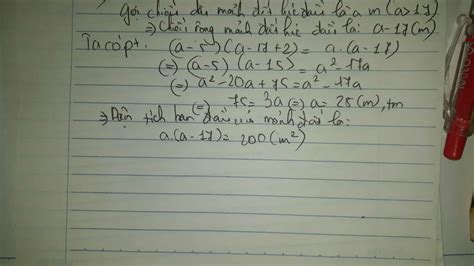 Gọi chiều dài mảnh đất lúc đầu là a m (a>17)
=> Chiều rộng mảnh đất lúc đầu là: a-17(m)
Ta có pt: (a-5)(a-17+2) = a.(a-17)
(=) (a-5)(a-15) = a²-17a
(=) a²-20a+75 = a²-17a
(=) 75 = 3a (=) a = 25(m), tm
=> Diện tích ban đầu của mảnh đất là:
a.(a-17) = 200(m²)